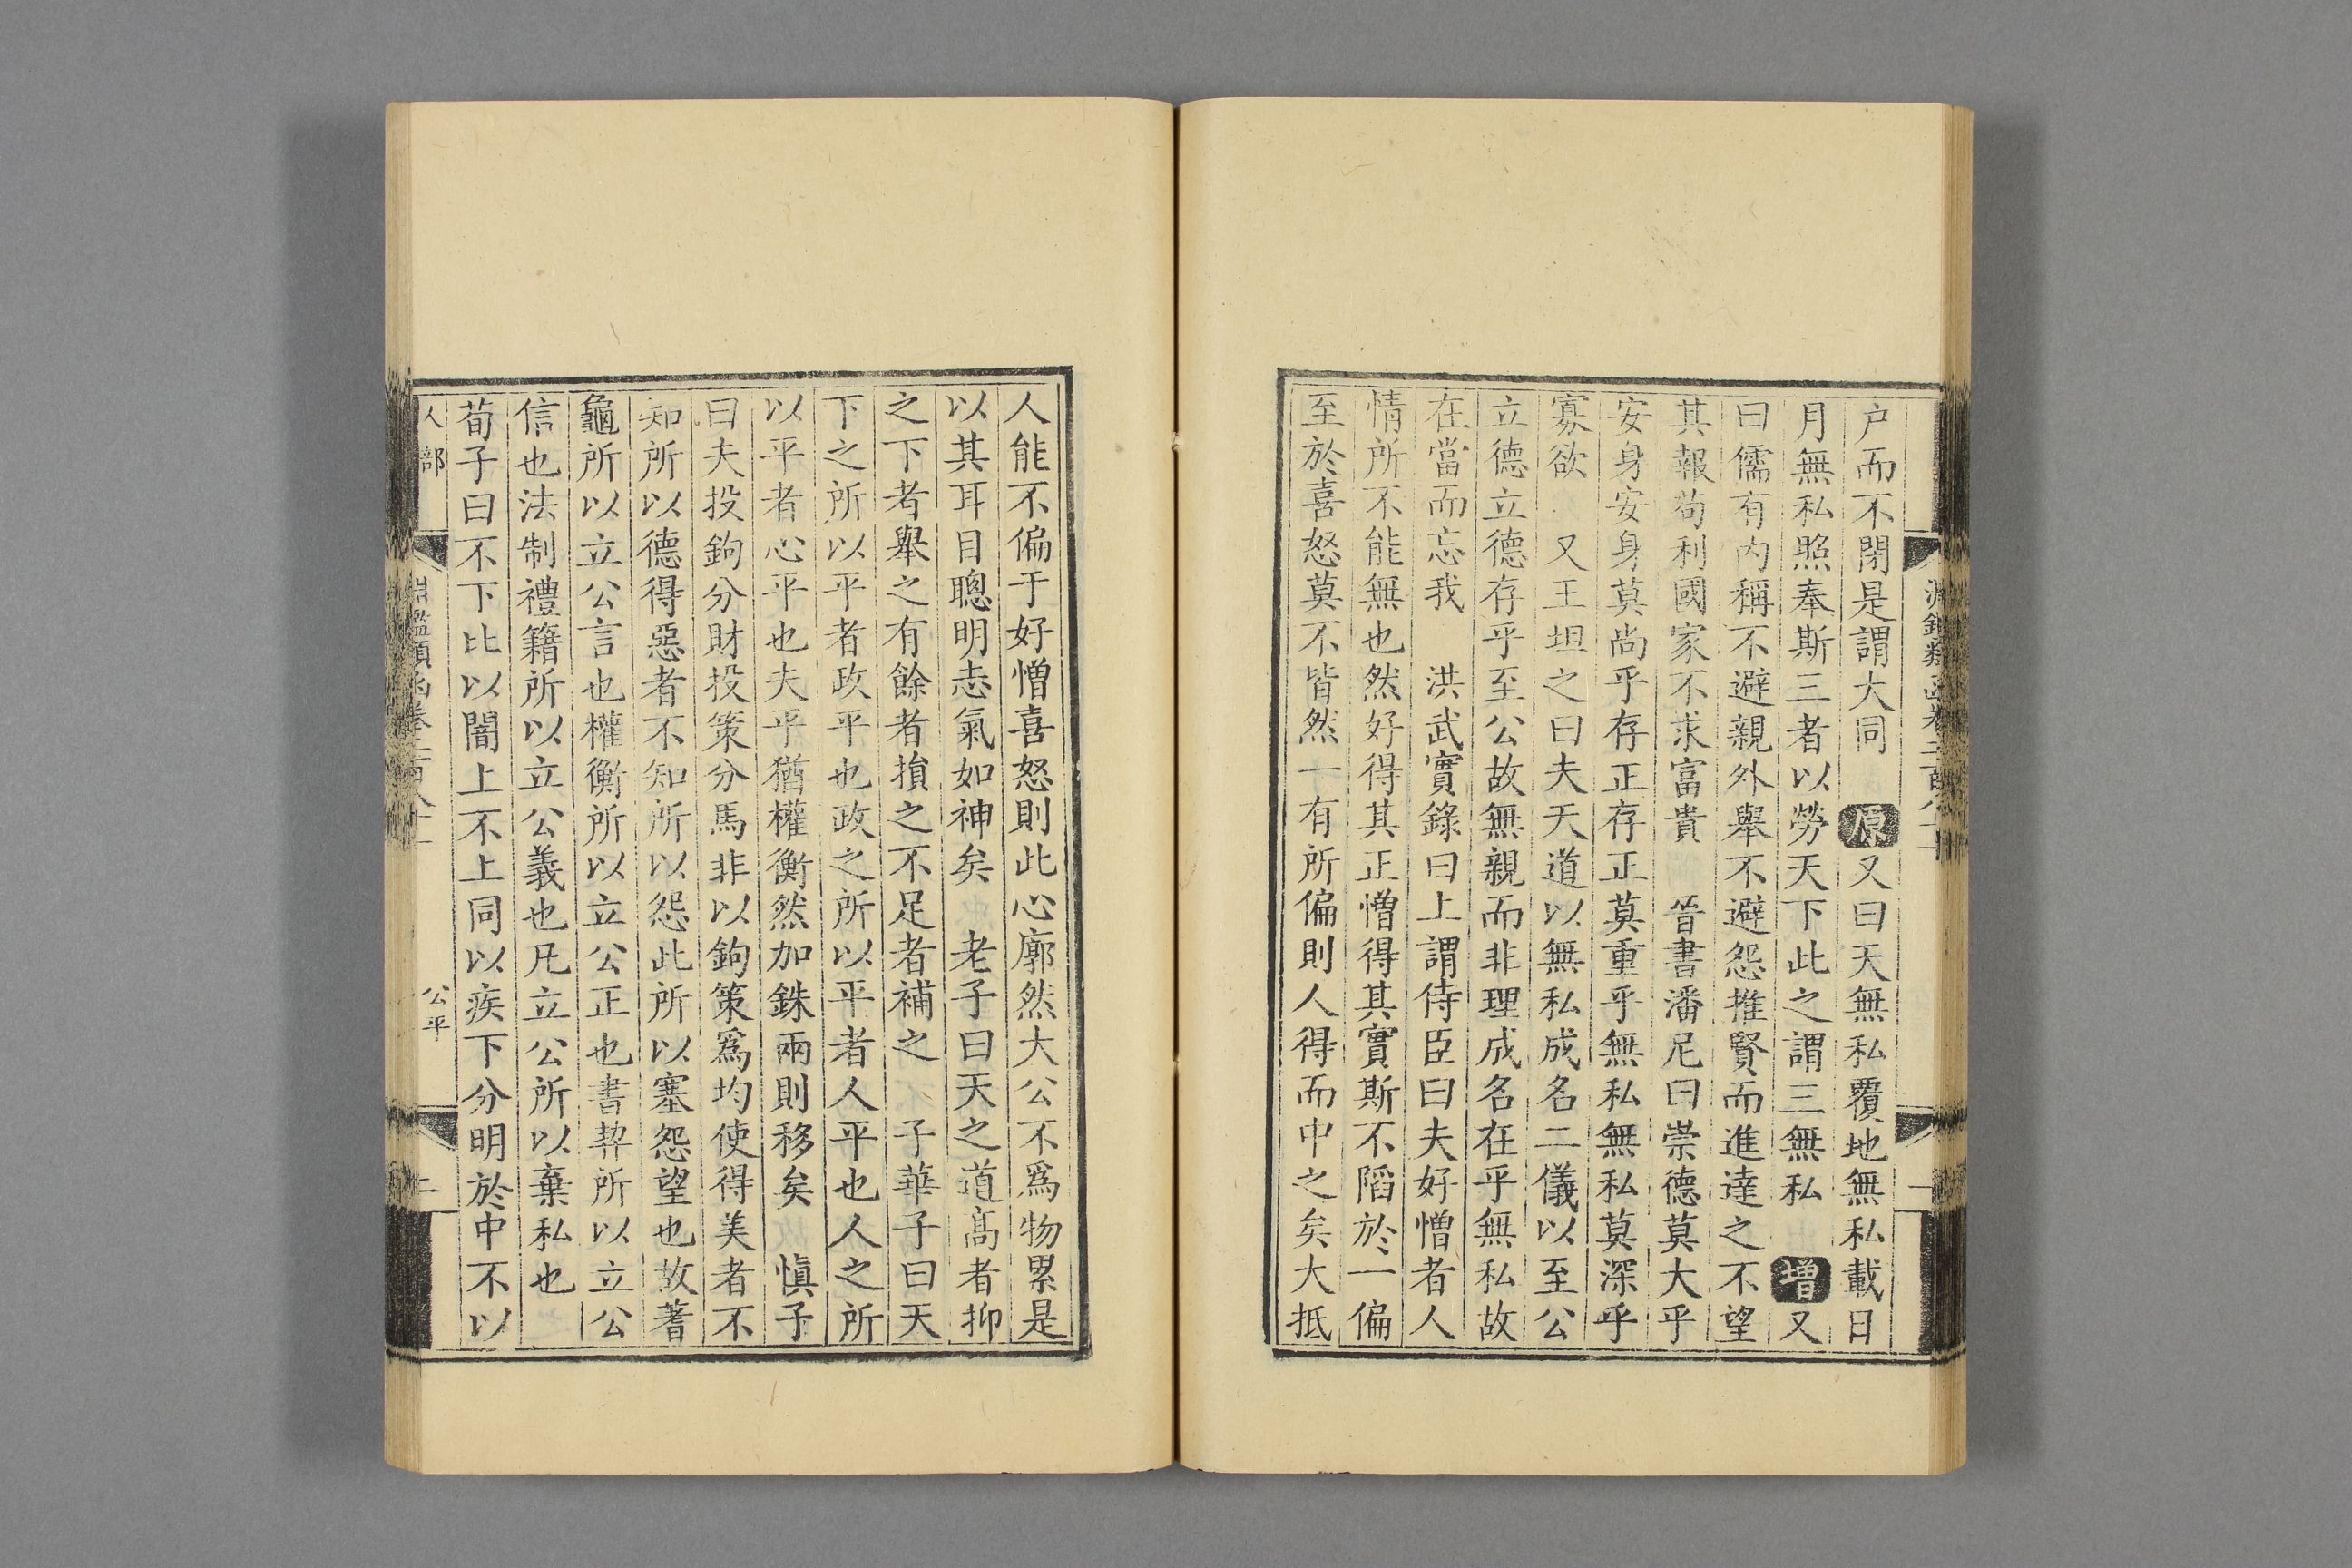 户而不閉是謂大同 原 又曰天無私覆地無私載日
月無私照奉斯三者以勞天下此之謂三無私 增 又
曰儒有内稱不避親外舉不避怨推賢而進達之不望
其報苟利國家不求富貴 晉書潘尼曰崇德莫大乎
安身安身莫尚乎存正存正莫重乎無私無私莫深乎
寡欲 又王坦之曰夫天道以無私成名二儀以至公
立德立德存乎至公故無親而非理成名在乎無私故
在當而忘我 洪武實錄曰上謂侍臣曰夫好憎者人
情所不能無也然好得其正憎得其實斯不陷於一偏
至於喜怒莫不皆然一有所偏則人得而中之矣大抵
人能不偏于好憎喜怒則此心廓然大公不爲物累是
以其耳目聰明志氣如神矣 老子曰天之道髙者抑
之下者舉之有餘者損之不足者補之 子華子曰天
下之所以平者政平也政之所以平者人平也人之所
以平者心平也夫平猶權衡然加銖兩則移矣 愼子
曰夫投鉤分財投策分馬非以鉤策爲均使得美者不
知所以德得惡者不知所以怨此所以塞怨望也故蓍
龜所以立公言也權衡所以立公正也書契所以立公
信也法制禮籍所以立公義也凡立公所以棄私也
荀子曰不下比以闇上不上同以疾下分明於中不以
人部
公平
二